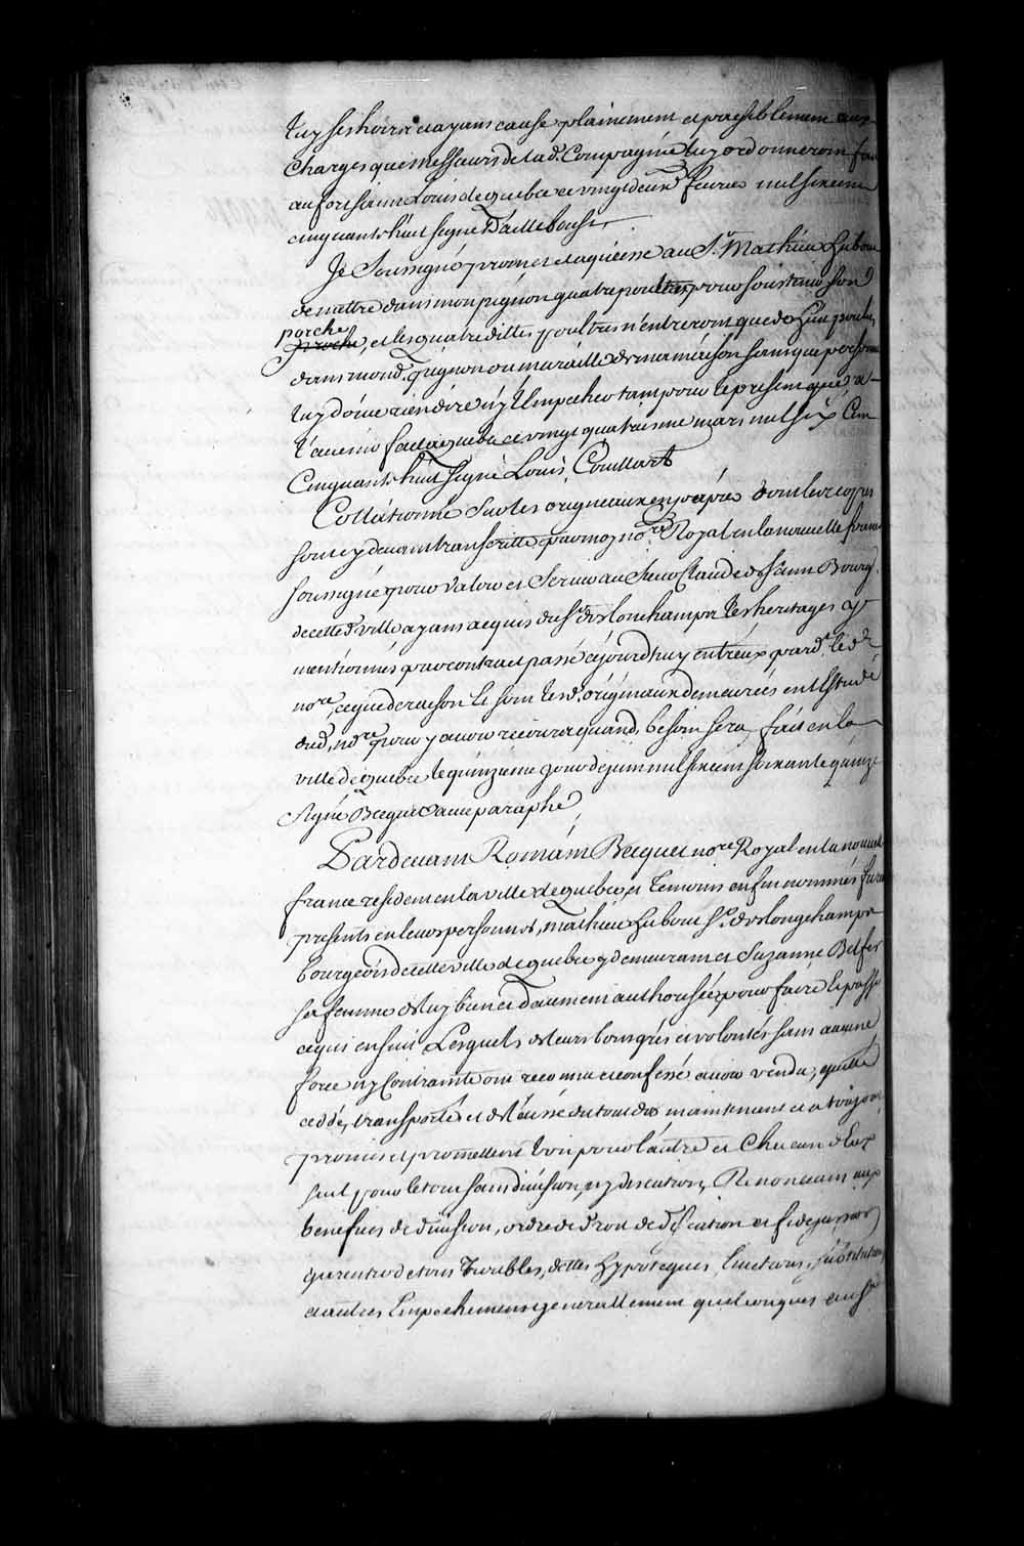 luy ses hoirs et ayans cause plainement et paisiblement aux
charges que messieurs de lad. Compagnie luy ordonneront fait
au fort saint Louis de quebec ce vingt deux feurier mil six cens
cinquante huit signé Dailleboust,
Je Soussigné promet et aquiesse au Sr. Mathieu hubou
de mettre dans mon pignon quatre poultres, pour soustenir son
porche
proche, et lesquatre dittes poultres n'entreront que de huit poulces
dans mond. pignon ou muraille de ma maison sans que personne
luy doiue rien dire ny l'Empecher tampour le present que a
l'auenir fait a quebec ce vingt quatriesme mars mil six Cens
Cinquante huit signé Louis Couillart
Collationné Sur les origineaux en papier dont les copies
sont cy deuant transcritte par moy nore. Royal en la nouuelle france
soussigné pour valoir et Seruir au Sieur Claude de Saint Bourg.
de cette d. ville ayans acquis du Sr. des lonchamps les heritages cy
mentionnés par contract passé cejourdhuy entr'eux pard. le d.
nore, ce que de raison Ce sont lesd. originaux demeurées en l'Estude
dud. nore. pour y auoir recours quand besoin sera fait en la
ville de quebec le quinzieme jour de juin mil six cens soixante quinze
Signé Becquet auec paraphe,
Pardeuant Romain Becquet nore. Royal en la nouuelle
france residement en la ville de quebec, et Temoins en fin nommés furent
presents en leurs personnes, mathieu hubou Sr. des longchamps
bourgeois de cette ville de quebec y demeurant et Suzanne Betfer
sa femme de luy bien et dûement authorisée pour faire & passer
ce qui ensuit Lesquels de leurs bons grés et volontés sans aucune
force ny Contrainte ont reconnu et confessé auoir vendu, quitté
ceddé, transporté et delaissé du tout des maintenant et a toujours
promis et promettent l'un pour l'autre et Chacun d'Eux
seul pour le tout sans diuision, ny discution, Renonceans aux
benefices de diuision, ordre de droit de discution et fidejussion
guarentir de tous Troubles, dettes hypoteques Euictions, substitutions
et autres Empechements generallement quelconques au Sr